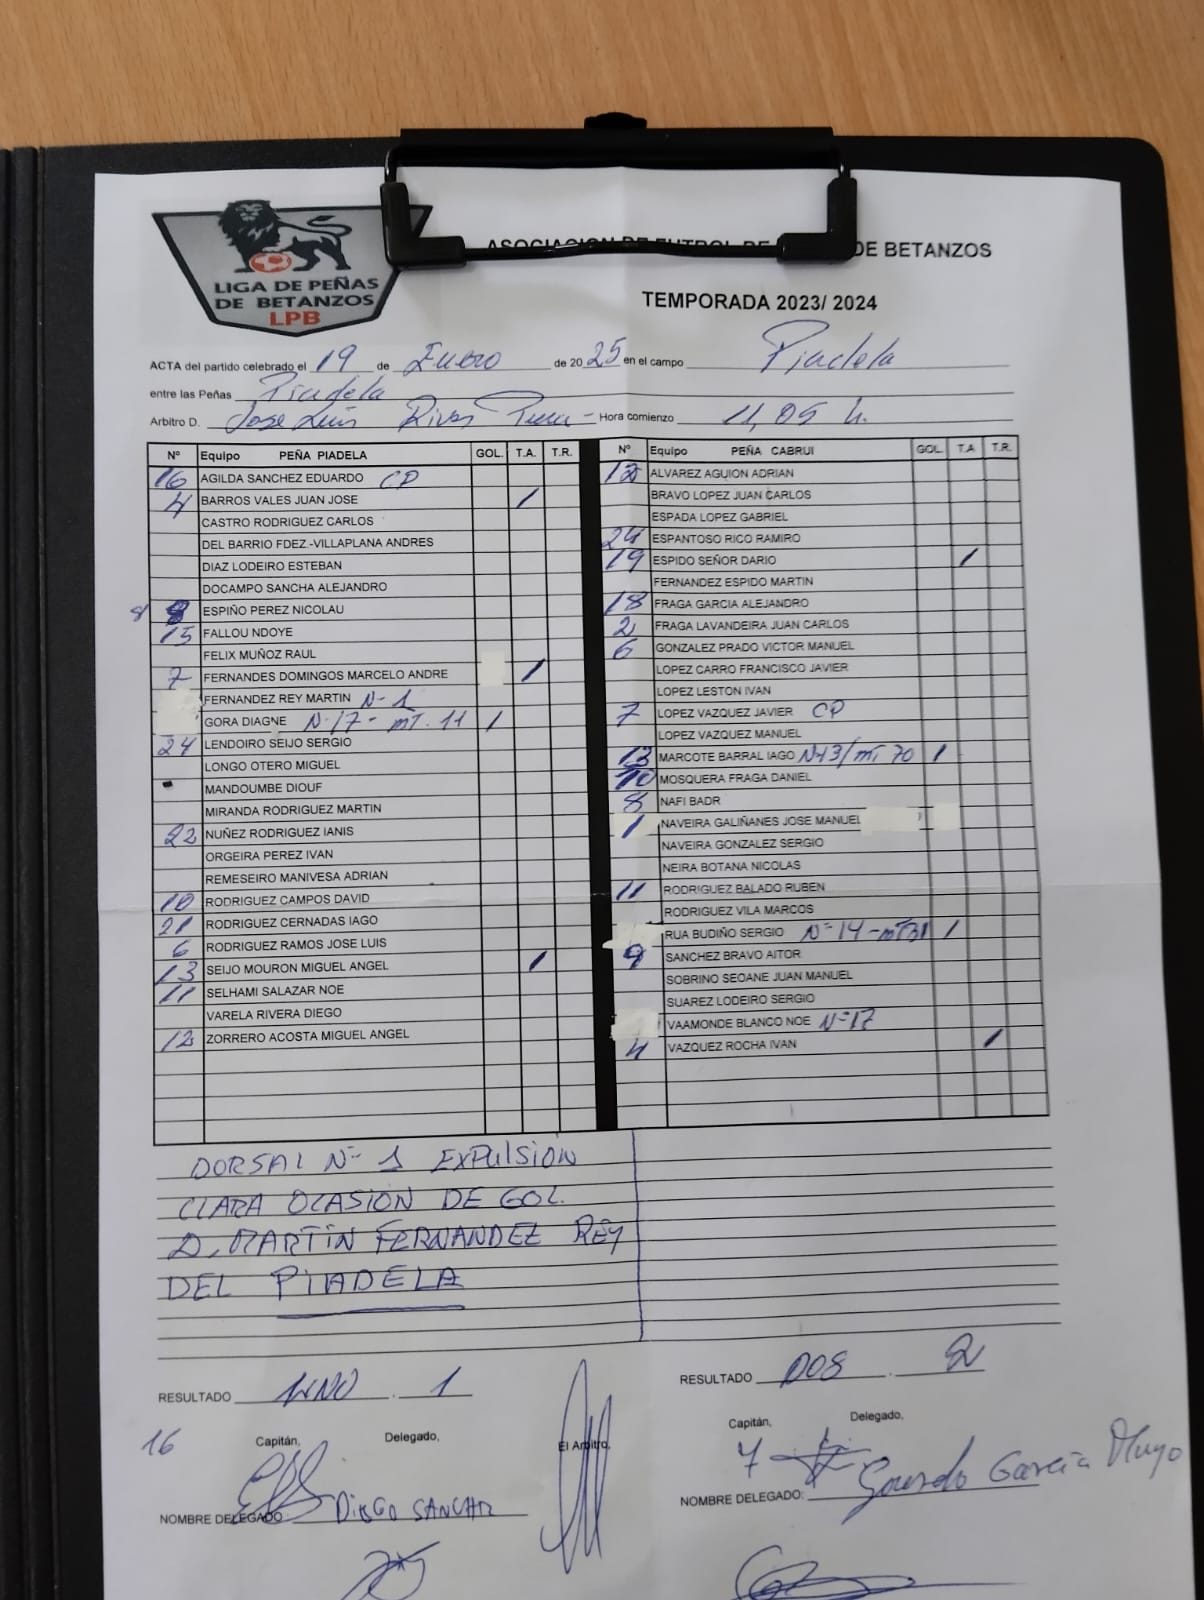 LIGA DE PEÑAS
DE BETANZOS
LPB
ASOCIACION DE FUTBOL DE DE BETANZOS
TEMPORADA 2023/ 2024
ACTA del partido celebrado el 19 de Enero de 2025 en el campo Piadela
entre las Peñas Piadela
Arbitro D. Jose Luis Rivas - Hora comienzo 11,05 h.
Nº Equipo PEÑA PIADELA GOL. T.A. T.R. Nº Equipo PEÑA CABRUI GOL. T.A. T.R.
16 AGILDA SANCHEZ EDUARDO CP ALVAREZ AGUION ADRIAN
4 BARROS VALES JUAN JOSE / BRAVO LOPEZ JUAN CARLOS
CASTRO RODRIGUEZ CARLOS ESPADA LOPEZ GABRIEL
DEL BARRIO FDEZ.-VILLAPLANA ANDRES 24 ESPANTOSO RICO RAMIRO
DIAZ LODEIRO ESTEBAN 19 ESPIDO SEÑOR DARIO /
DOCAMPO SANCHA ALEJANDRO FERNANDEZ ESPIDO MARTIN
8 8 ESPIÑO PEREZ NICOLAU 18 FRAGA GARCIA ALEJANDRO
15 FALLOU NDOYE 2 FRAGA LAVANDEIRA JUAN CARLOS
FELIX MUÑOZ RAUL 6 GONZALEZ PRADO VICTOR MANUEL
7 FERNANDES DOMINGOS MARCELO ANDRE / LOPEZ CARRO FRANCISCO JAVIER
FERNANDEZ REY MARTIN Nº 1 LOPEZ LESTON IVAN
GORA DIAGNE Nº 17 - mT. 11 / 7 LOPEZ VAZQUEZ JAVIER CP
24 LENDOIRO SEIJO SERGIO LOPEZ VAZQUEZ MANUEL
LONGO OTERO MIGUEL 13 MARCOTE BARRAL IAGO Nº13/mT. 70 /
MANDOUMBE DIOUF 10 MOSQUERA FRAGA DANIEL
MIRANDA RODRIGUEZ MARTIN 8 NAFI BADR
22 NUÑEZ RODRIGUEZ IANIS 1 NAVEIRA GALIÑANES JOSE MANUEL
ORGEIRA PEREZ IVAN NAVEIRA GONZALEZ SERGIO
REMESEIRO MANIVESA ADRIAN NEIRA BOTANA NICOLAS
10 RODRIGUEZ CAMPOS DAVID 11 RODRIGUEZ BALADO RUBEN
21 RODRIGUEZ CERNADAS IAGO RODRIGUEZ VILA MARCOS
6 RODRIGUEZ RAMOS JOSE LUIS RUA BUDIÑO SERGIO Nº 14 - mT31 /
13 SEIJO MOURON MIGUEL ANGEL / 9 SANCHEZ BRAVO AITOR
11 SELHAMI SALAZAR NOE SOBRINO SEOANE JUAN MANUEL
VARELA RIVERA DIEGO SUAREZ LODEIRO SERGIO
12 ZORRERO ACOSTA MIGUEL ANGEL VAAMONDE BLANCO NOE Nº17
4 VAZQUEZ ROCHA IVAN /
DORSAL Nº 1 EXPULSION
CLARA OCASION DE GOL.
D. MARTIN FERNANDEZ REY
DEL PIADELA
RESULTADO UNO . 1 RESULTADO DOS . 2
16 Capitán, Delegado, El Arbitro, 7 Capitán, Delegado,
NOMBRE DELEGADO: DIEGO SANCHEZ NOMBRE DELEGADO: Garcia